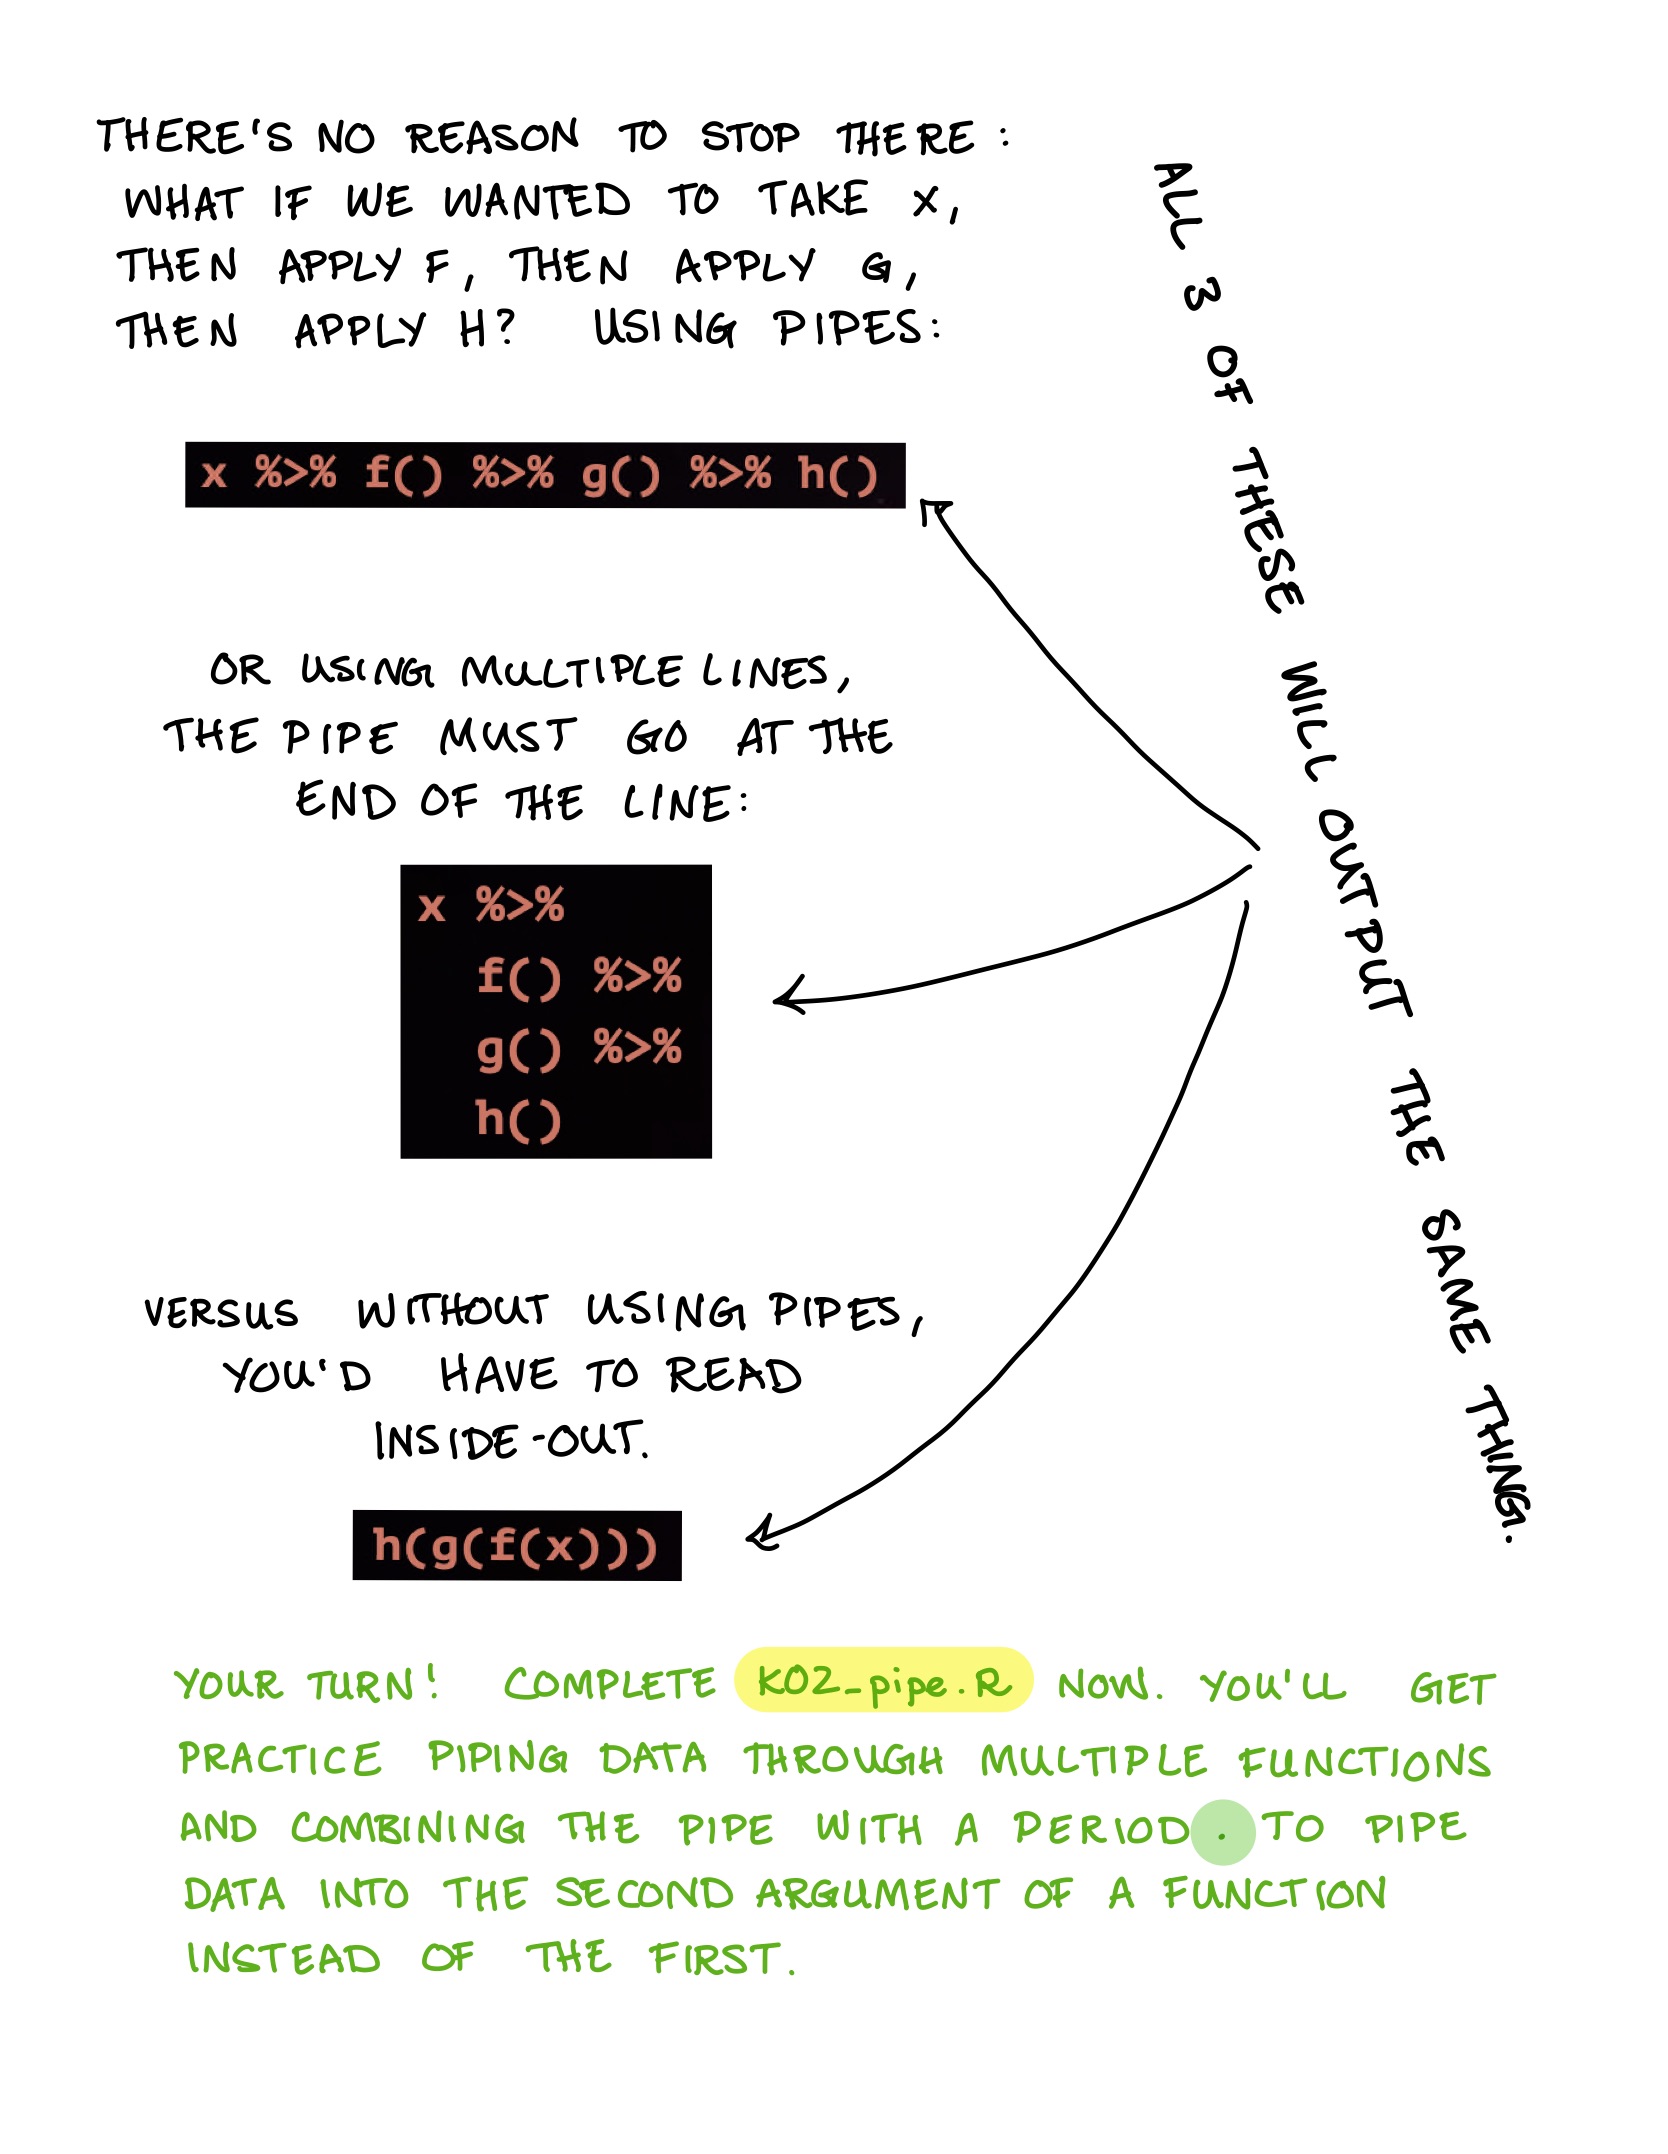 THERE'S NO REASON TO STOP THERE:
WHAT IF WE WANTED TO TAKE X,
THEN APPLY F, THEN APPLY G,
THEN APPLY H? USING PIPES:
x %>% f() %>% g() %>% h()
OR USING MULTIPLE LINES,
THE PIPE MUST GO AT THE
END OF THE LINE:
x %>%
f() %>%
g() %>%
h()
VERSUS WITHOUT USING PIPES,
YOU'D HAVE TO READ
INSIDE-OUT.
h(g(f(x)))
ALL 3 OF THESE WILL OUTPUT THE SAME THING.
YOUR TURN! COMPLETE K02_pipe.R NOW. YOU'LL GET
PRACTICE PIPING DATA THROUGH MULTIPLE FUNCTIONS
AND COMBINING THE PIPE WITH A PERIOD . TO PIPE
DATA INTO THE SECOND ARGUMENT OF A FUNCTION
INSTEAD OF THE FIRST.